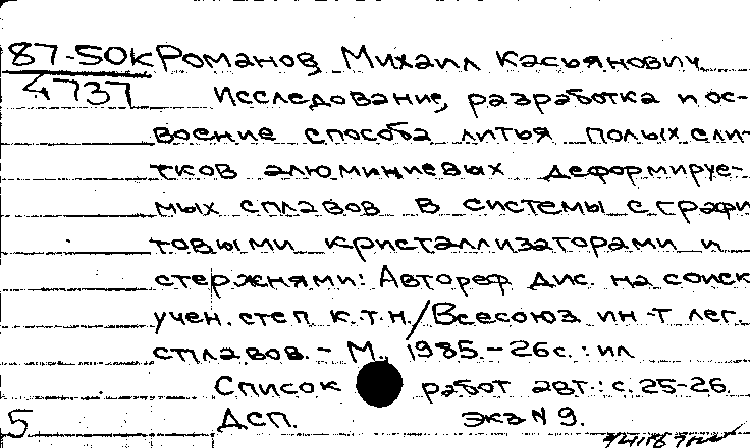 87-50к Романов, Михаил Касьянович
4737 Исследование, разработка и ос-
воение способа литья полых сли-
тков алюминиевых деформируе-
мых сплавов в системы с графи
товыми кристаллизаторами и
стержнями: Автореф. дис. на соиск
учен. степ к.т.н./Всесоюз. ин-т лег.
сплавов. - М., 1985. - 26с.: ил
Список работ авт.: с. 25-26.
5 Дсп. экз N 9.